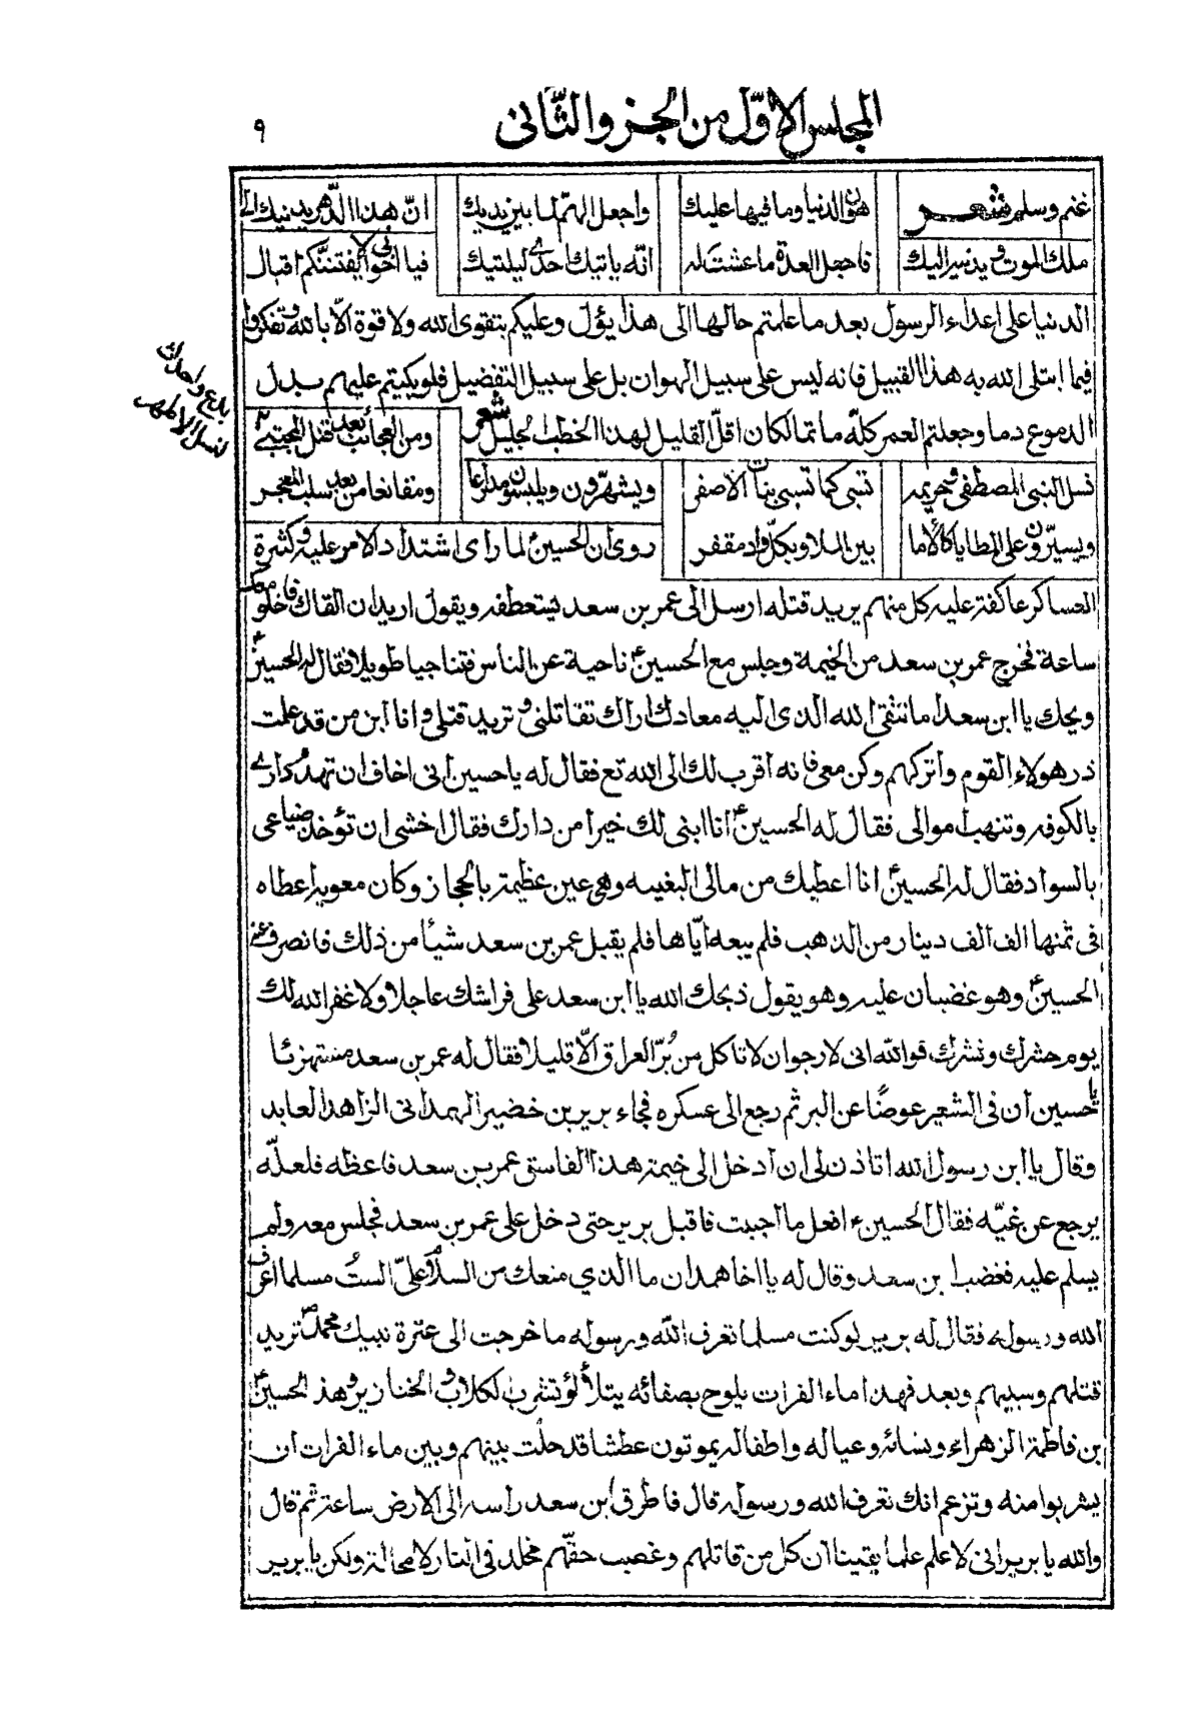 المجلس الاوّل من الجزو الثّانى
٩
غنم وسلم شعر هون الدنيا وما فيها عليك واجعل الهمّ لما بين يديك انّ هذا الدّهر يدنيك الى
ملك الموت ويدنيه اليك فاجعل العدة ما عشت له انّه ياتيك احدى ليلتيك فيا اخوانى لا يفتننّكم اقبال
الدنيا على اعداء الرسول بعد ما علمتم حالها الى هذا يؤل وعليكم بتقوى الله ولا قوة الّا بالله وتفكروا
فيما ابتلى الله به هذا القبيل فانه ليس على سبيل الهوان بل على سبيل التفضيل فلو بكيتم عليهم بدل
الدموع دما وجعلتم العمر كلّه ماتما لكان اقلّ القليل لهذا الخطب الجليل شعر ومن العجائب بعد قتل المجتبى
نسل النبى المصطفى وحريمه تسبى كما تسبى بنات الاصفر ويشهّرون ويلبسون مدارعا ومقانعا من بعد سلب المعجر
ويسيّرون على المطايا كالأما بين الملا وبكلّ واد مقفر روى ان الحسينؑ لما راى اشتداد الامر عليه وكثرة
العساكر عاكفة عليه كل منهم يريد قتله ارسل الى عمر بن سعد يستعطفه ويقول اريد ان القاك فاخلو معك
ساعة فخرج عمر بن سعد من الخيمة وجلس مع الحسينؑ ناحية عن الناس فتناجيا طويلا فقال له الحسينؑ
ويحك يا ابن سعد اما تتقى الله الذى اليه معادك اراك تقاتلنى وتريد قتلى وانا ابن من قد علمت
ذر هولاء القوم واتركهم وكن معى فانه اقرب لك الى الله تع فقال له يا حسين انى اخاف ان تهدم دارى
بالكوفه وتنهب اموالى فقال له الحسينؑ انا ابنى لك خيرا من دارك فقال اخشى ان تؤخذ ضياعى
بالسواد فقال له الحسينؑ انا اعطيك من مالى البغيبغه وهى عين عظيمة بالحجاز وكان معويه اعطاه
فى ثمنها الف الف دينار من الذهب فلم يبعه ايّاها فلم يقبل عمر بن سعد شيأ من ذلك فانصرف عنه
الحسينؑ وهو غضبان عليه وهو يقول ذبحك الله يا ابن سعد على فراشك عاجلا ولا غفر الله لك
يوم حشرك ونشرك فوالله انى لارجو ان لا تاكل من بُرّ العراق الّا قليلا فقال له عمر بن سعد مستهزئا
يا حسين ان فى الشعير عوضًا عن البر ثم رجع الى عسكره فجاء برير بن خضير الهمدانى الزاهد العابد
وقال يا ابن رسول الله اتاذن لى ان ادخل الى خيمة هذا الفاسق عمر بن سعد فاعظه فلعلّه
يرجع عن غيّه فقال الحسينؑ افعل ما احببت فاقبل برير حتى دخل على عمر بن سعد فجلس معه ولم
يسلم عليه فغضب ابن سعد وقال له يا اخا همدان ما الذي منعك من السلام علىّ الستُ مسلما اعرف
الله ورسوله فقال له برير لو كنت مسلما تعرف الله ورسوله ما خرجت الى عترة نبيك محمدؐ تريد
قتلهم وسبيهم وبعد فهذا ماء الفرات يلوح بصفائه يتلألؤ تشرب الكلاب والخنازير وهذ الحسينؑ
بن فاطمة الزهراء ونسائه وعياله واطفاله يموتون عطشا قد حلت بينهم وبين ماء الفرات ان
يشربوا منه وتزعم انك تعرف الله ورسوله قال فاطرق ابن سعد راسه الى الارض ساعة ثم قال
والله يا برير انى لاعلم علما يقينا ان كل من قاتلهم وغصب حقّهم مخلد فى النار لا محالة ولكن يا برير